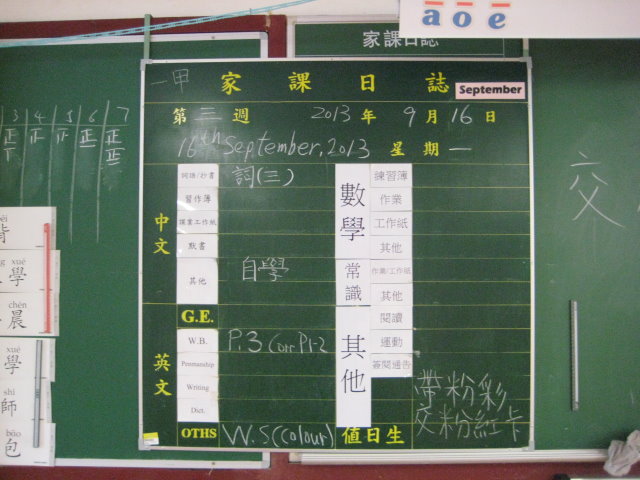 a o e
家課日誌
一甲 家課日誌 September
第三週 2013年9月16日
16th September, 2013 星期一
中文
詞語/抄書 詞(三)
習作簿
課業工作紙
默書
其他 自學
英文
G.E.
W.B. P.3 Corr P1-2
Penmanship
Writing
Dict.
OTHS W.S(Colour)
數學
練習簿
作業
工作紙
其他
常識
作業/工作紙
其他
其他
閱讀
運動
簽閱通告
帶粉彩
交粉紅卡
值日生
3 4 5 6 7
正 正 正 正 正
背
xué
學
chén
晨
xué
學
shī
師
bāo
包
交